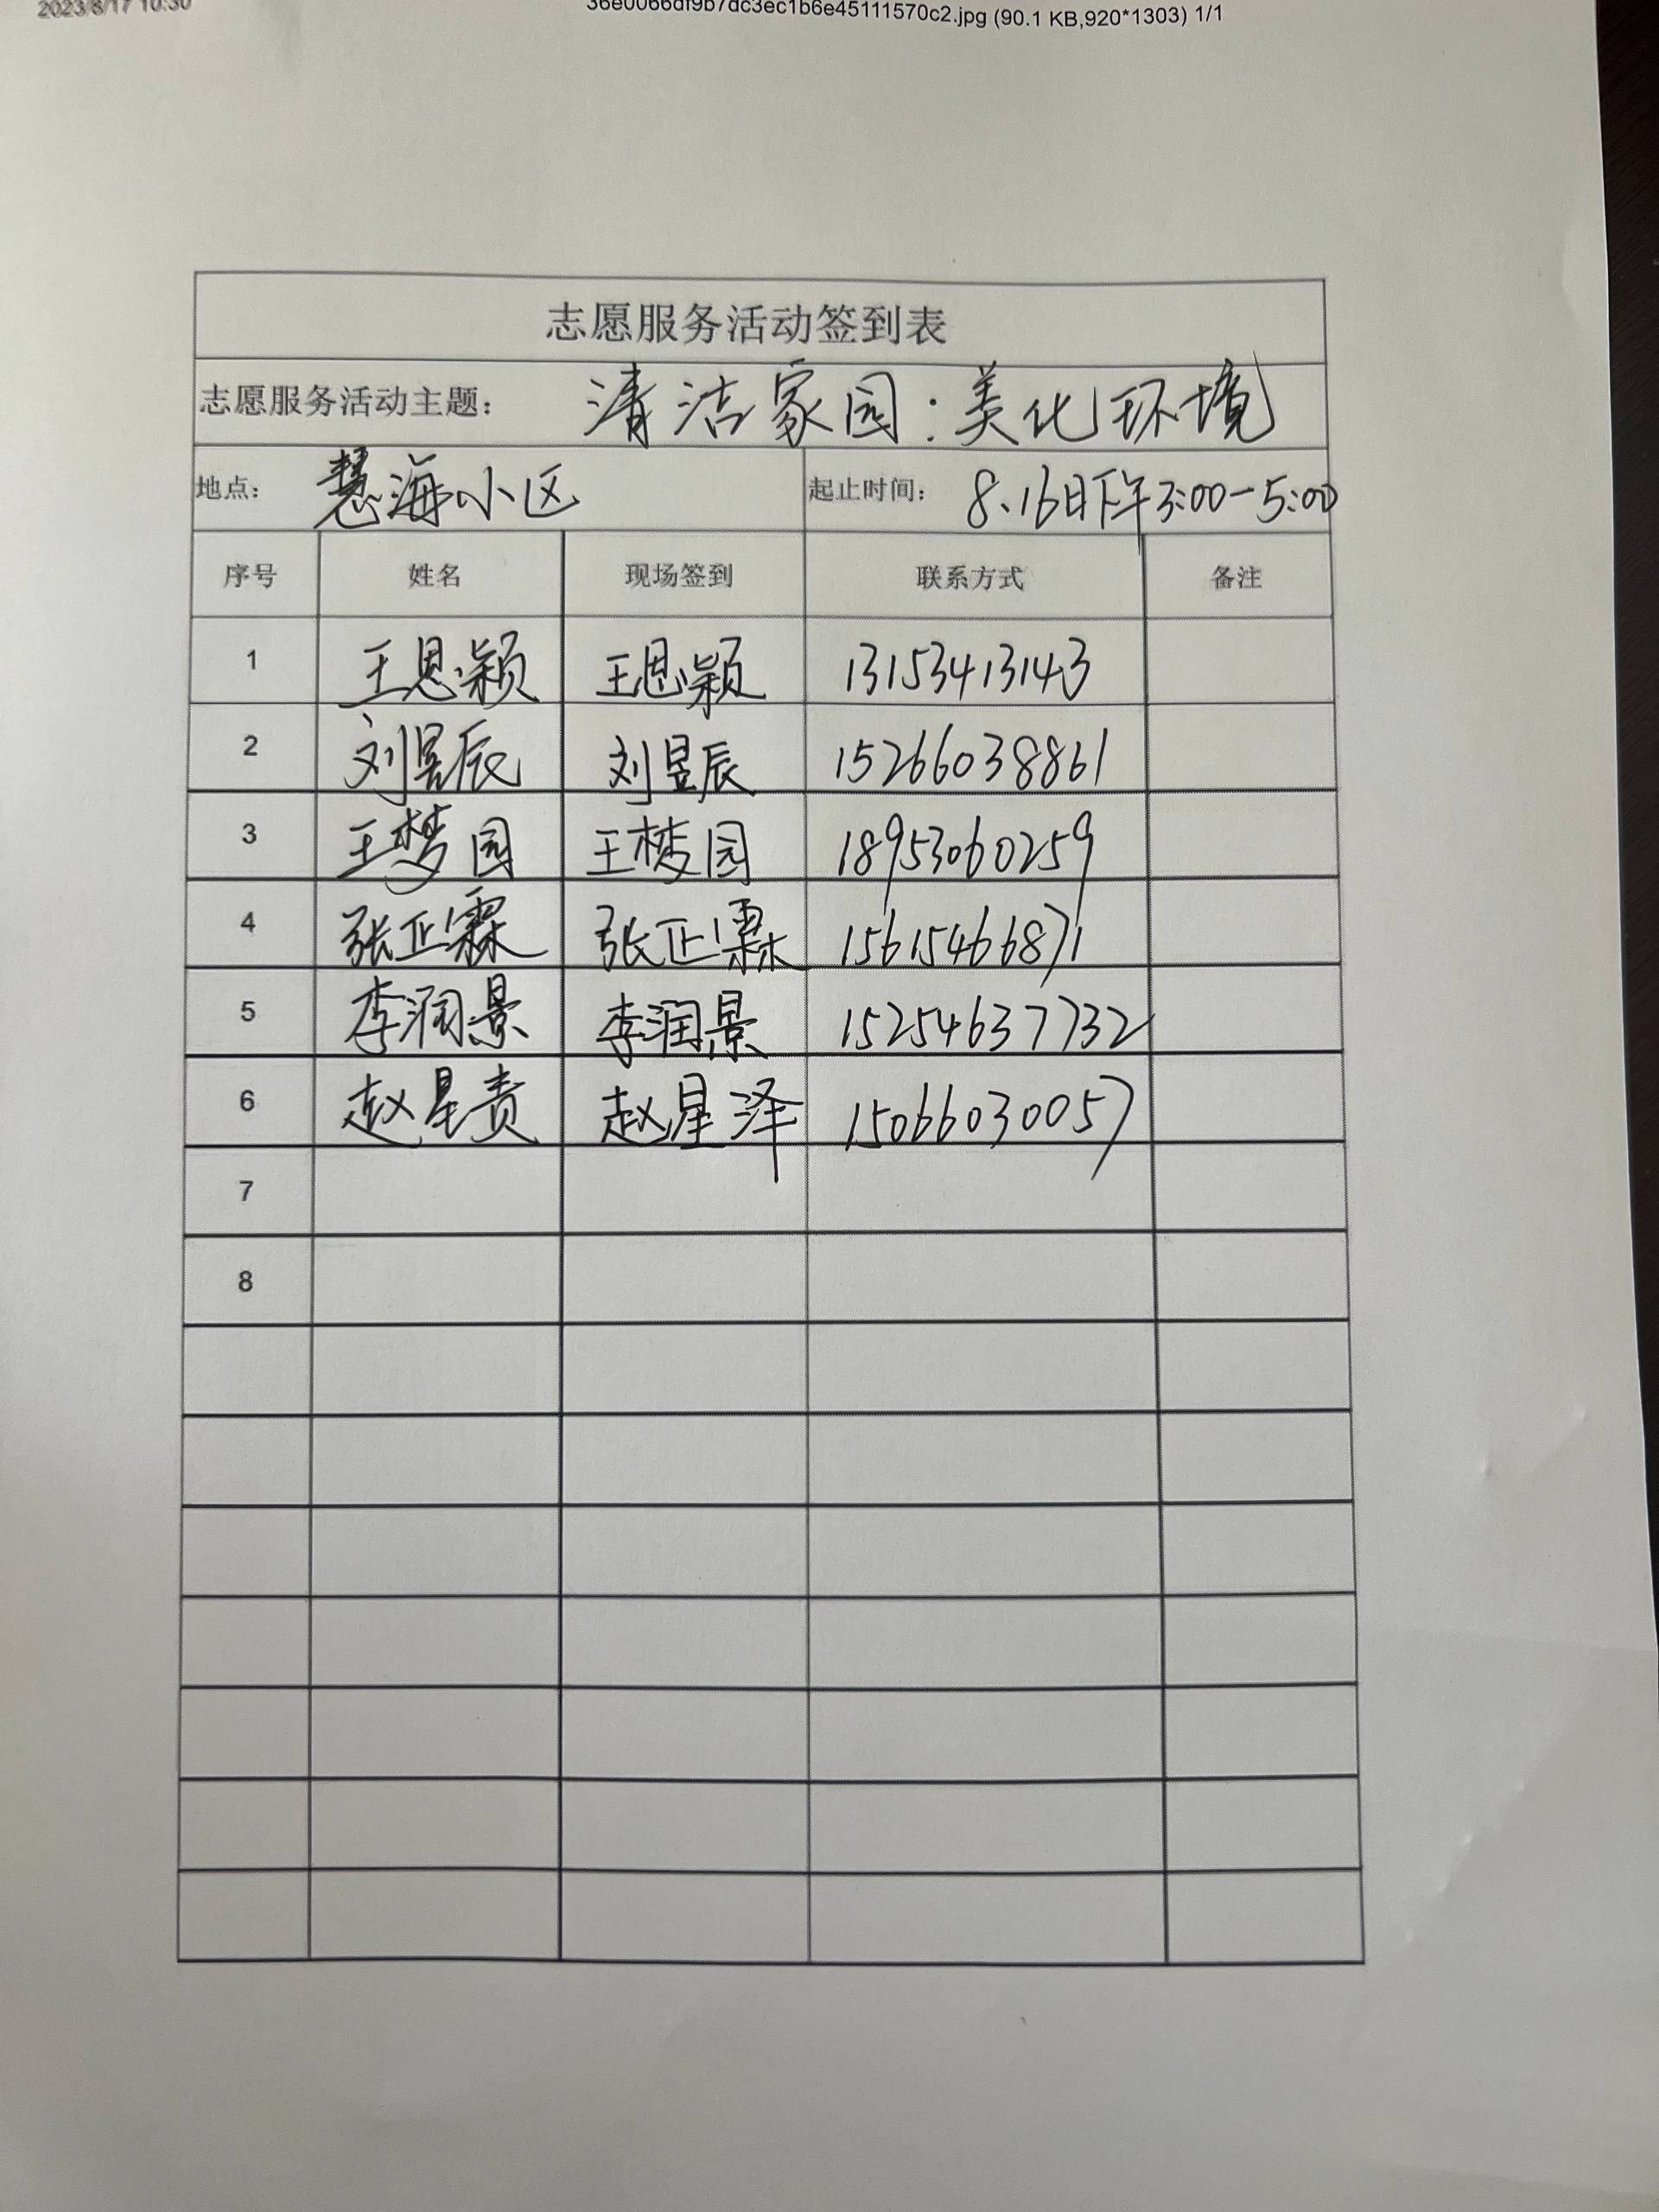 2023/8/17 10:30
36e0066df9b7dc3ec1b6e45111570c2.jpg (90.1 KB,920*1303) 1/1
志愿服务活动签到表
志愿服务活动主题： 清洁家园：美化环境
地点： 慧海小区 起止时间： 8.16日下午3:00-5:00
序号 姓名 现场签到 联系方式 备注
1 王恩颖 王恩颖 13153413143
2 刘昱辰 刘昱辰 15266038861
3 王梦园 王梦园 18953060259
4 张正霖 张正霖 15615466871
5 李润景 李润景 15254637732
6 赵星责 赵星泽 15066030057
7
8